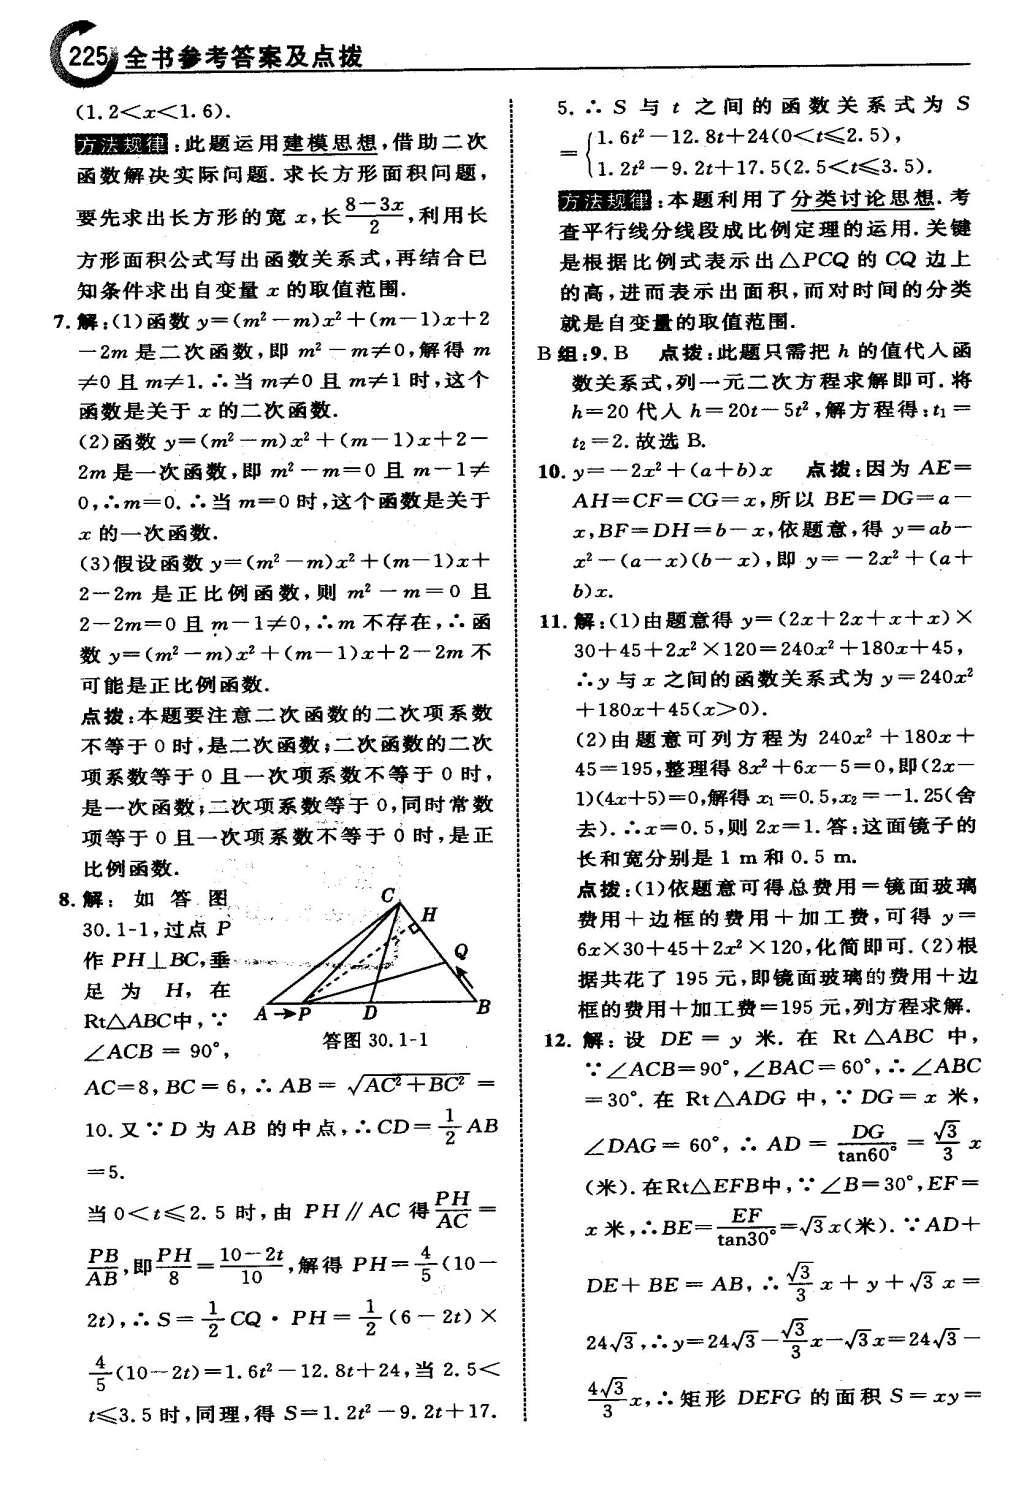 225 全书参考答案及点拨
(1.2<x<1.6).
方法规律:此题运用建模思想,借助二次
函数解决实际问题.求长方形面积问题,
要先求出长方形的宽 x,长\frac{8-3x}{2},利用长
方形面积公式写出函数关系式,再结合已
知条件求出自变量 x 的取值范围.
7.解:(1)函数 y=(m²-m)x²+(m-1)x+2
-2m 是二次函数,即 m²-m≠0,解得 m
≠0 且 m≠1.∴当 m≠0 且 m≠1 时,这个
函数是关于 x 的二次函数.
(2)函数 y=(m²-m)x²+(m-1)x+2-
2m 是一次函数,即 m²-m=0 且 m-1≠
0,∴m=0.∴当 m=0 时,这个函数是关于
x 的一次函数.
(3)假设函数 y=(m²-m)x²+(m-1)x+
2-2m 是正比例函数,则 m²-m=0 且
2-2m=0 且 m-1≠0,∴m 不存在,∴函
数 y=(m²-m)x²+(m-1)x+2-2m 不
可能是正比例函数.
点拨:本题要注意二次函数的二次项系数
不等于 0 时,是二次函数;二次函数的二次
项系数等于 0 且一次项系数不等于 0 时,
是一次函数;二次项系数等于 0,同时常数
项等于 0 且一次项系数不等于 0 时,是正
比例函数.
8.解:如答图
30.1-1,过点 P
作 PH⊥BC,垂
足为 H,在
Rt△ABC中,∵
∠ACB=90°,
C
H
Q
A→P D B
答图 30.1-1
AC=8,BC=6,∴AB=√(AC²+BC²)=
10.又∵D 为 AB 的中点,∴CD=\frac{1}{2}AB
=5.
当 0<t≤2.5 时,由 PH∥AC 得\frac{PH}{AC}=
\frac{PB}{AB},即\frac{PH}{8}=\frac{10-2t}{10},解得 PH=\frac{4}{5}(10-
2t),∴S=\frac{1}{2}CQ·PH=\frac{1}{2}(6-2t)×
\frac{4}{5}(10-2t)=1.6t²-12.8t+24,当 2.5<
t≤3.5 时,同理,得 S=1.2t²-9.2t+17.
5.∴S 与 t 之间的函数关系式为 S
={1.6t²-12.8t+24(0<t≤2.5),
1.2t²-9.2t+17.5(2.5<t≤3.5).
方法规律:本题利用了分类讨论思想.考
查平行线分线段成比例定理的运用.关键
是根据比例式表示出△PCQ 的 CQ 边上
的高,进而表示出面积,而对时间的分类
就是自变量的取值范围.
B组:9.B 点拨:此题只需把 h 的值代入函
数关系式,列一元二次方程求解即可.将
h=20 代入 h=20t-5t²,解方程得:t₁=
t₂=2.故选 B.
10.y=-2x²+(a+b)x 点拨:因为 AE=
AH=CF=CG=x,所以 BE=DG=a-
x,BF=DH=b-x,依题意,得 y=ab-
x²-(a-x)(b-x),即 y=-2x²+(a+
b)x.
11.解:(1)由题意得 y=(2x+2x+x+x)×
30+45+2x²×120=240x²+180x+45,
∴y 与 x 之间的函数关系式为 y=240x²
+180x+45(x>0).
(2)由题意可列方程为 240x²+180x+
45=195,整理得 8x²+6x-5=0,即(2x-
1)(4x+5)=0,解得 x₁=0.5,x₂=-1.25(舍
去).∴x=0.5,则 2x=1.答:这面镜子的
长和宽分别是 1 m 和 0.5 m.
点拨:(1)依题意可得总费用=镜面玻璃
费用+边框的费用+加工费,可得 y=
6x×30+45+2x²×120,化简即可.(2)根
据共花了 195 元,即镜面玻璃的费用+边
框的费用+加工费=195 元,列方程求解.
12.解:设 DE=y 米.在 Rt△ABC 中,
∵∠ACB=90°,∠BAC=60°,∴∠ABC
=30°.在 Rt△ADG 中,∵DG=x 米,
∠DAG=60°,∴AD=\frac{DG}{tan60°}=\frac{√3}{3}x
(米).在Rt△EFB中,∵∠B=30°,EF=
x 米,∴BE=\frac{EF}{tan30°}=√3x(米).∵AD+
DE+BE=AB,∴\frac{√3}{3}x+y+√3x=
24√3,∴y=24√3-\frac{√3}{3}x-√3x=24√3-
\frac{4√3}{3}x,∴矩形 DEFG 的面积 S=xy=